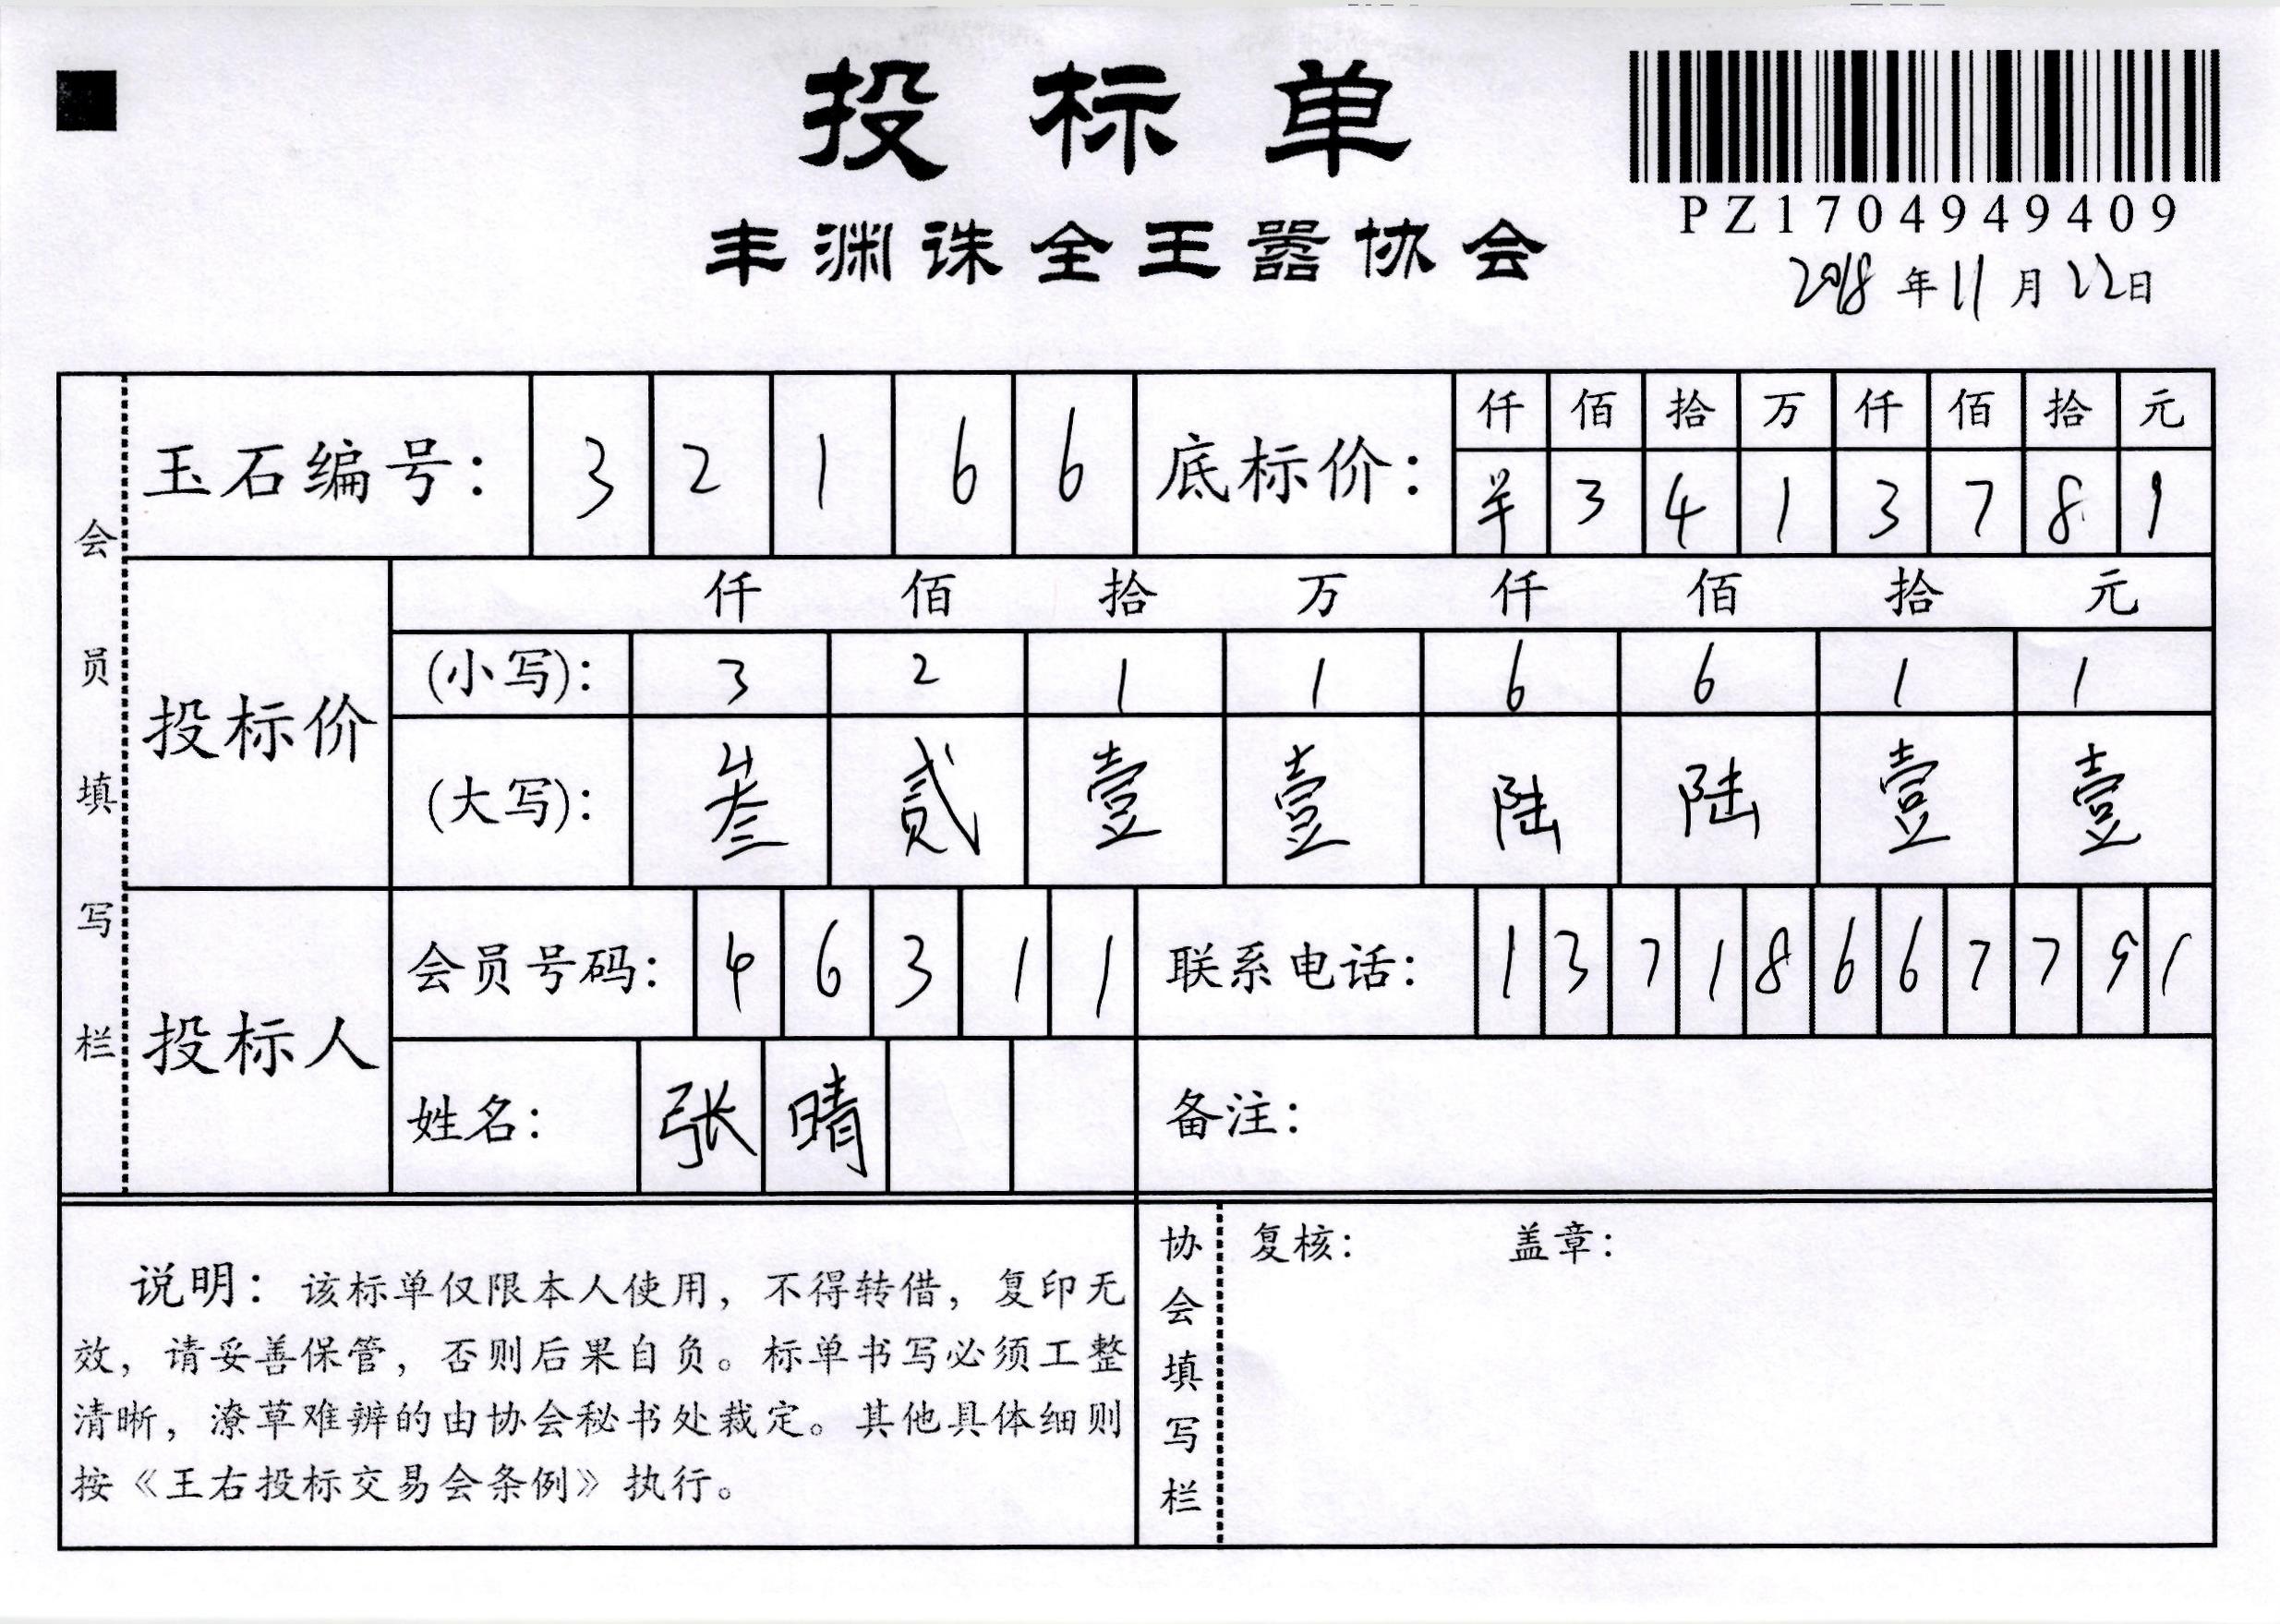 投标单
PZ1704949409
丰渊诛全王嚣协会
2018年11月22日
会员填写栏
玉石编号: 3 2 1 6 6
底标价:
仟 佰 拾 万 仟 佰 拾 元
3 4 1 3 7 8 9
投标价
仟 佰 拾 万 仟 佰 拾 元
(小写): 3 2 1 1 6 6 1 1
(大写): 叁 贰 壹 壹 陆 陆 壹 壹
投标人
会员号码: 4 6 3 1 1
联系电话: 1 3 7 1 8 6 6 7 7 9 1
姓名: 张 晴
备注:
说明: 该标单仅限本人使用, 不得转借, 复印无
效, 请妥善保管, 否则后果自负。标单书写必须工整
清晰, 潦草难辨的由协会秘书处裁定。其他具体细则
按《王右投标交易会条例》执行。
协会填写栏
复核: 盖章: